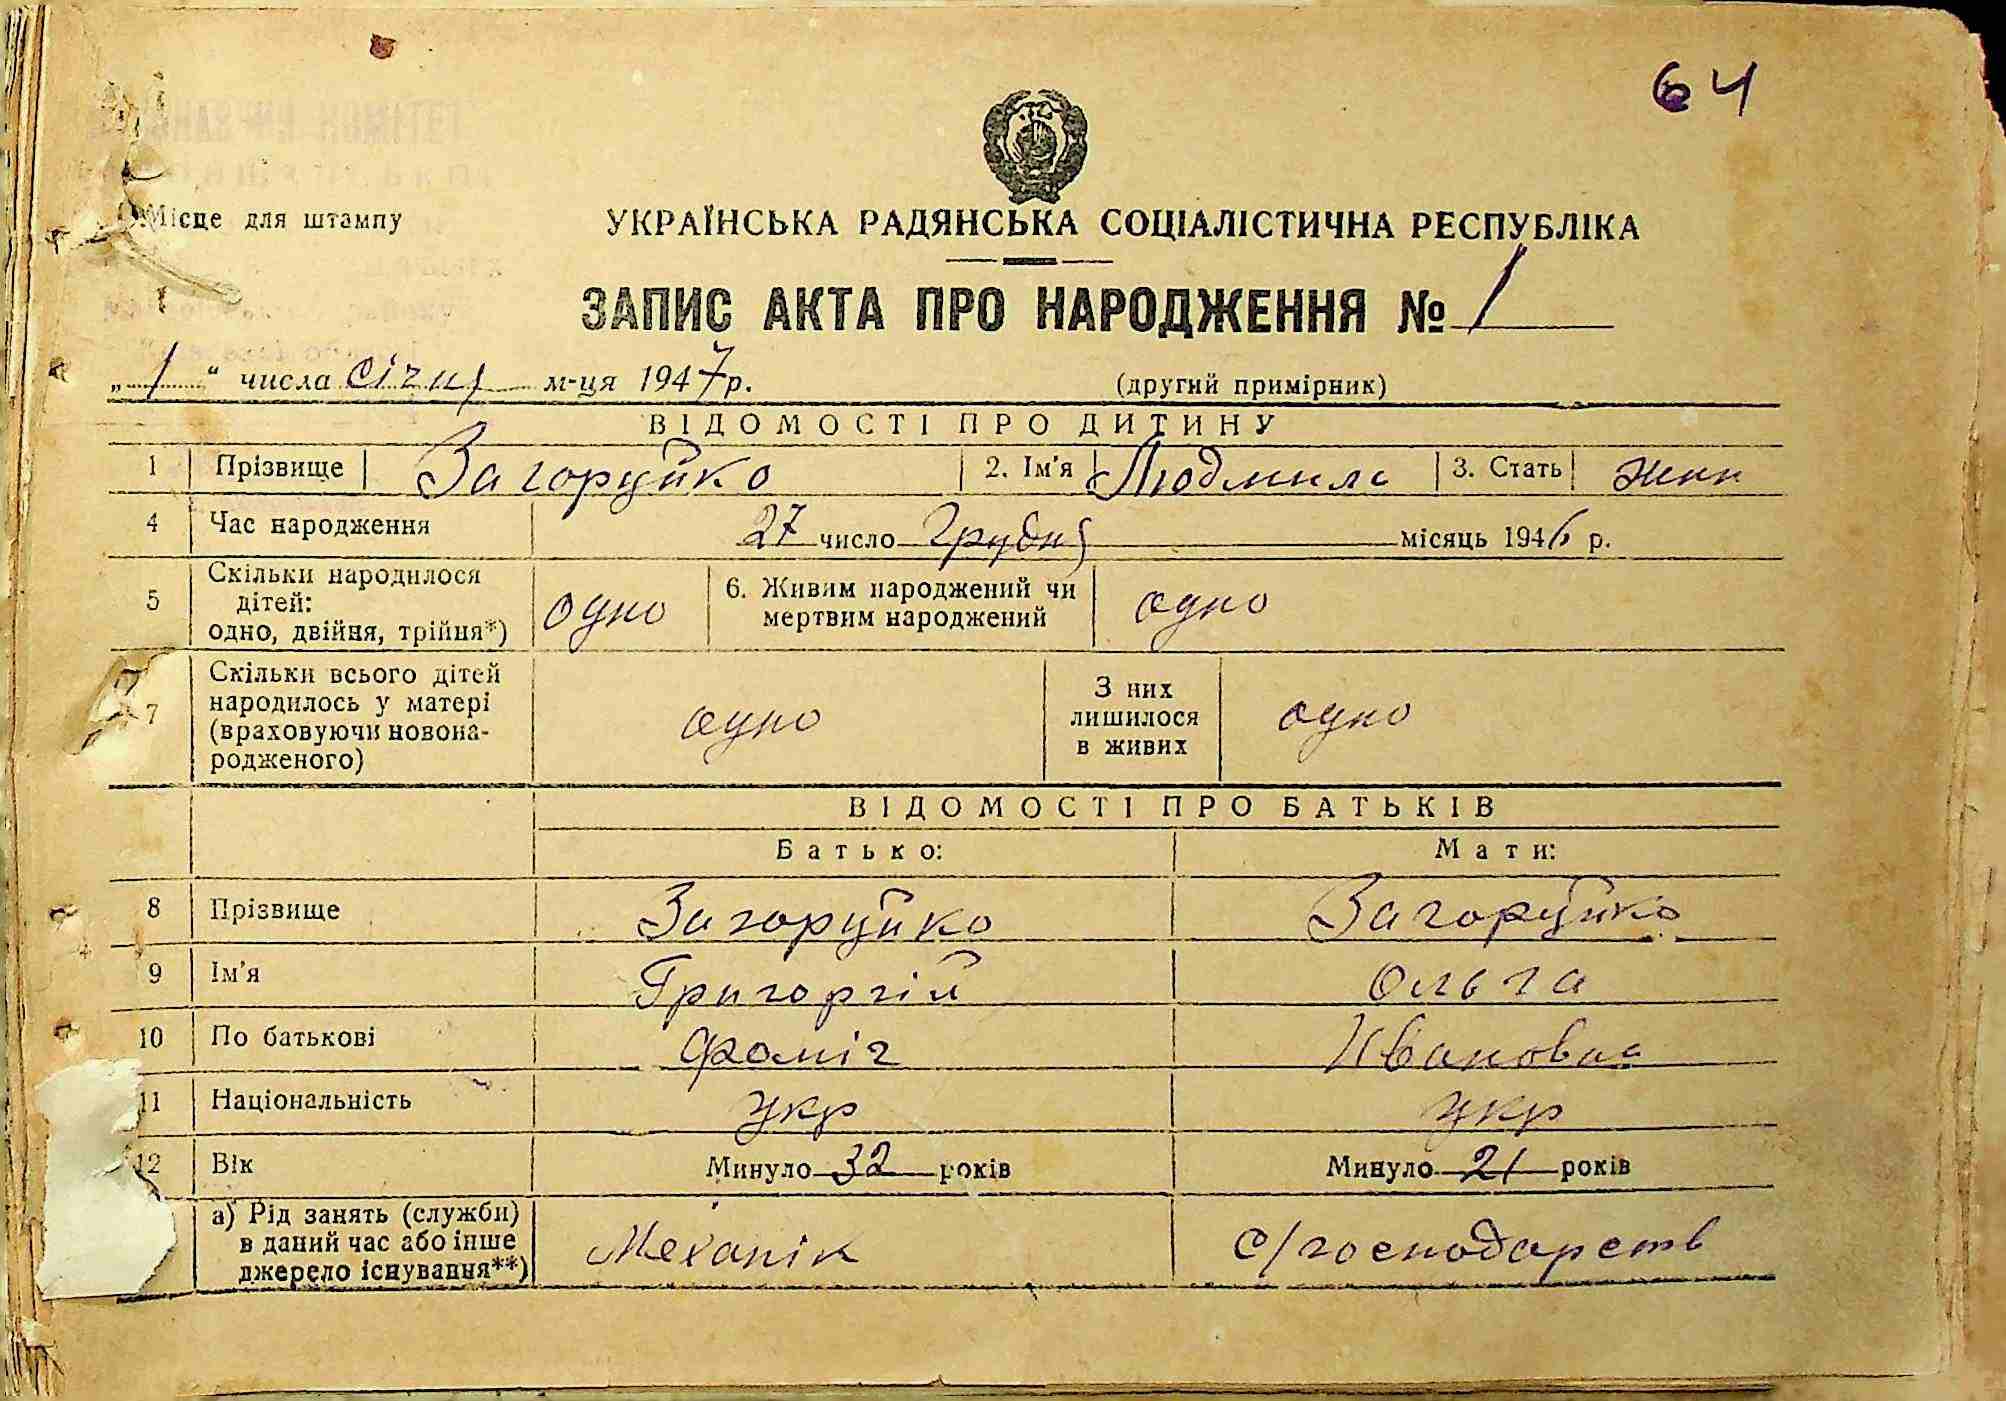 64
Місце для штампу
УКРАЇНСЬКА РАДЯНСЬКА СОЦІАЛІСТИЧНА РЕСПУБЛІКА
ЗАПИС АКТА ПРО НАРОДЖЕННЯ № 1
„ 1 “ числа січня м-ця 1947 р. (другий примірник)
ВІДОМОСТІ ПРО ДИТИНУ
1 Прізвище Загоруйко 2. Ім'я Людмила 3. Стать жин
4 Час народження 27 число Грудня місяць 1946 р.
5 Скільки народилося дітей: одно, двійня, трійня*) одно 6. Живим народжений чи мертвим народжений одно
7 Скільки всього дітей народилось у матері (враховуючи новонародженого) одно З них лишилося в живих одно
ВІДОМОСТІ ПРО БАТЬКІВ
Батько: Мати:
8 Прізвище Загоруйко Загоруйко
9 Ім'я Григорій Ольга
10 По батькові Фоміч Ивановна
11 Національність укр укр
12 Вік Минуло 32 років Минуло 21 років
а) Рід занять (служби) в даний час або інше джерело існування**) Механік с/господарств